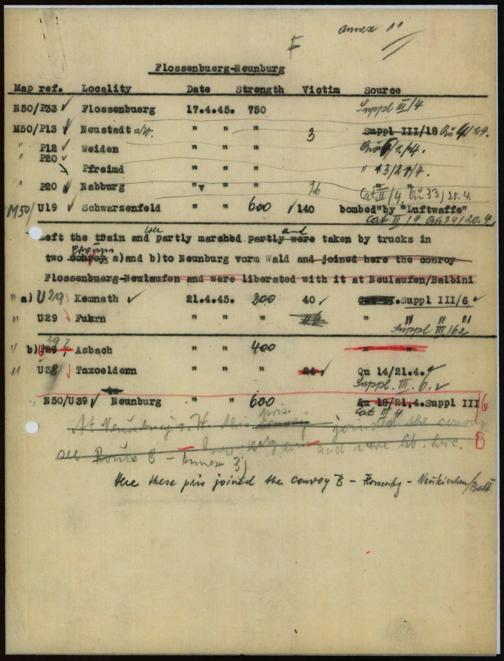 Annex 11
F
Flossenbuerg-Neunburg
Map ref. Locality Date Strength Victim Source
N50/P33 Flossenbuerg 17.4.45. 750 Suppl III/4
M50/P13 Neustadt a/W. " " " 3 Suppl III/18
" P12 Weiden " " "
" P20 Pfreimd " " "
" P20 Nabburg " " " Cat II/4, Qu 33/20.4.
M50/ U19 Schwarzenfeld " " 600 140 bombed by "Luftwaffe"
Cat II/4 Qu 34/20.4.
left the train and partly marched partly and were taken by trucks in
two convoy groups a) and b) to Neunburg vorm Wald and joined here the convoy
Flossenbuerg-Neulaufen and were liberated with it at Neulaufen/Balbini
" a) U29 Kemnath 21.4.45. 200 40 Suppl III/6
" U29 Fuhrn " " " " " "
Suppl III/6a
" b) U29 Asbach " " 400
" U38 Taxoeldern " " " 24 Qu 14/21.4.
Suppl. III 6.
N50/U39 Neunburg " " 600 Qu 18/21.4. Suppl III/6
Cat III 4
At Neunburg v. W. this pris. joined the convoy B
see Route B - Annex 3) and were lib. here.
Here these pris joined the convoy B - Flossenbg - Neukirchen/Balb